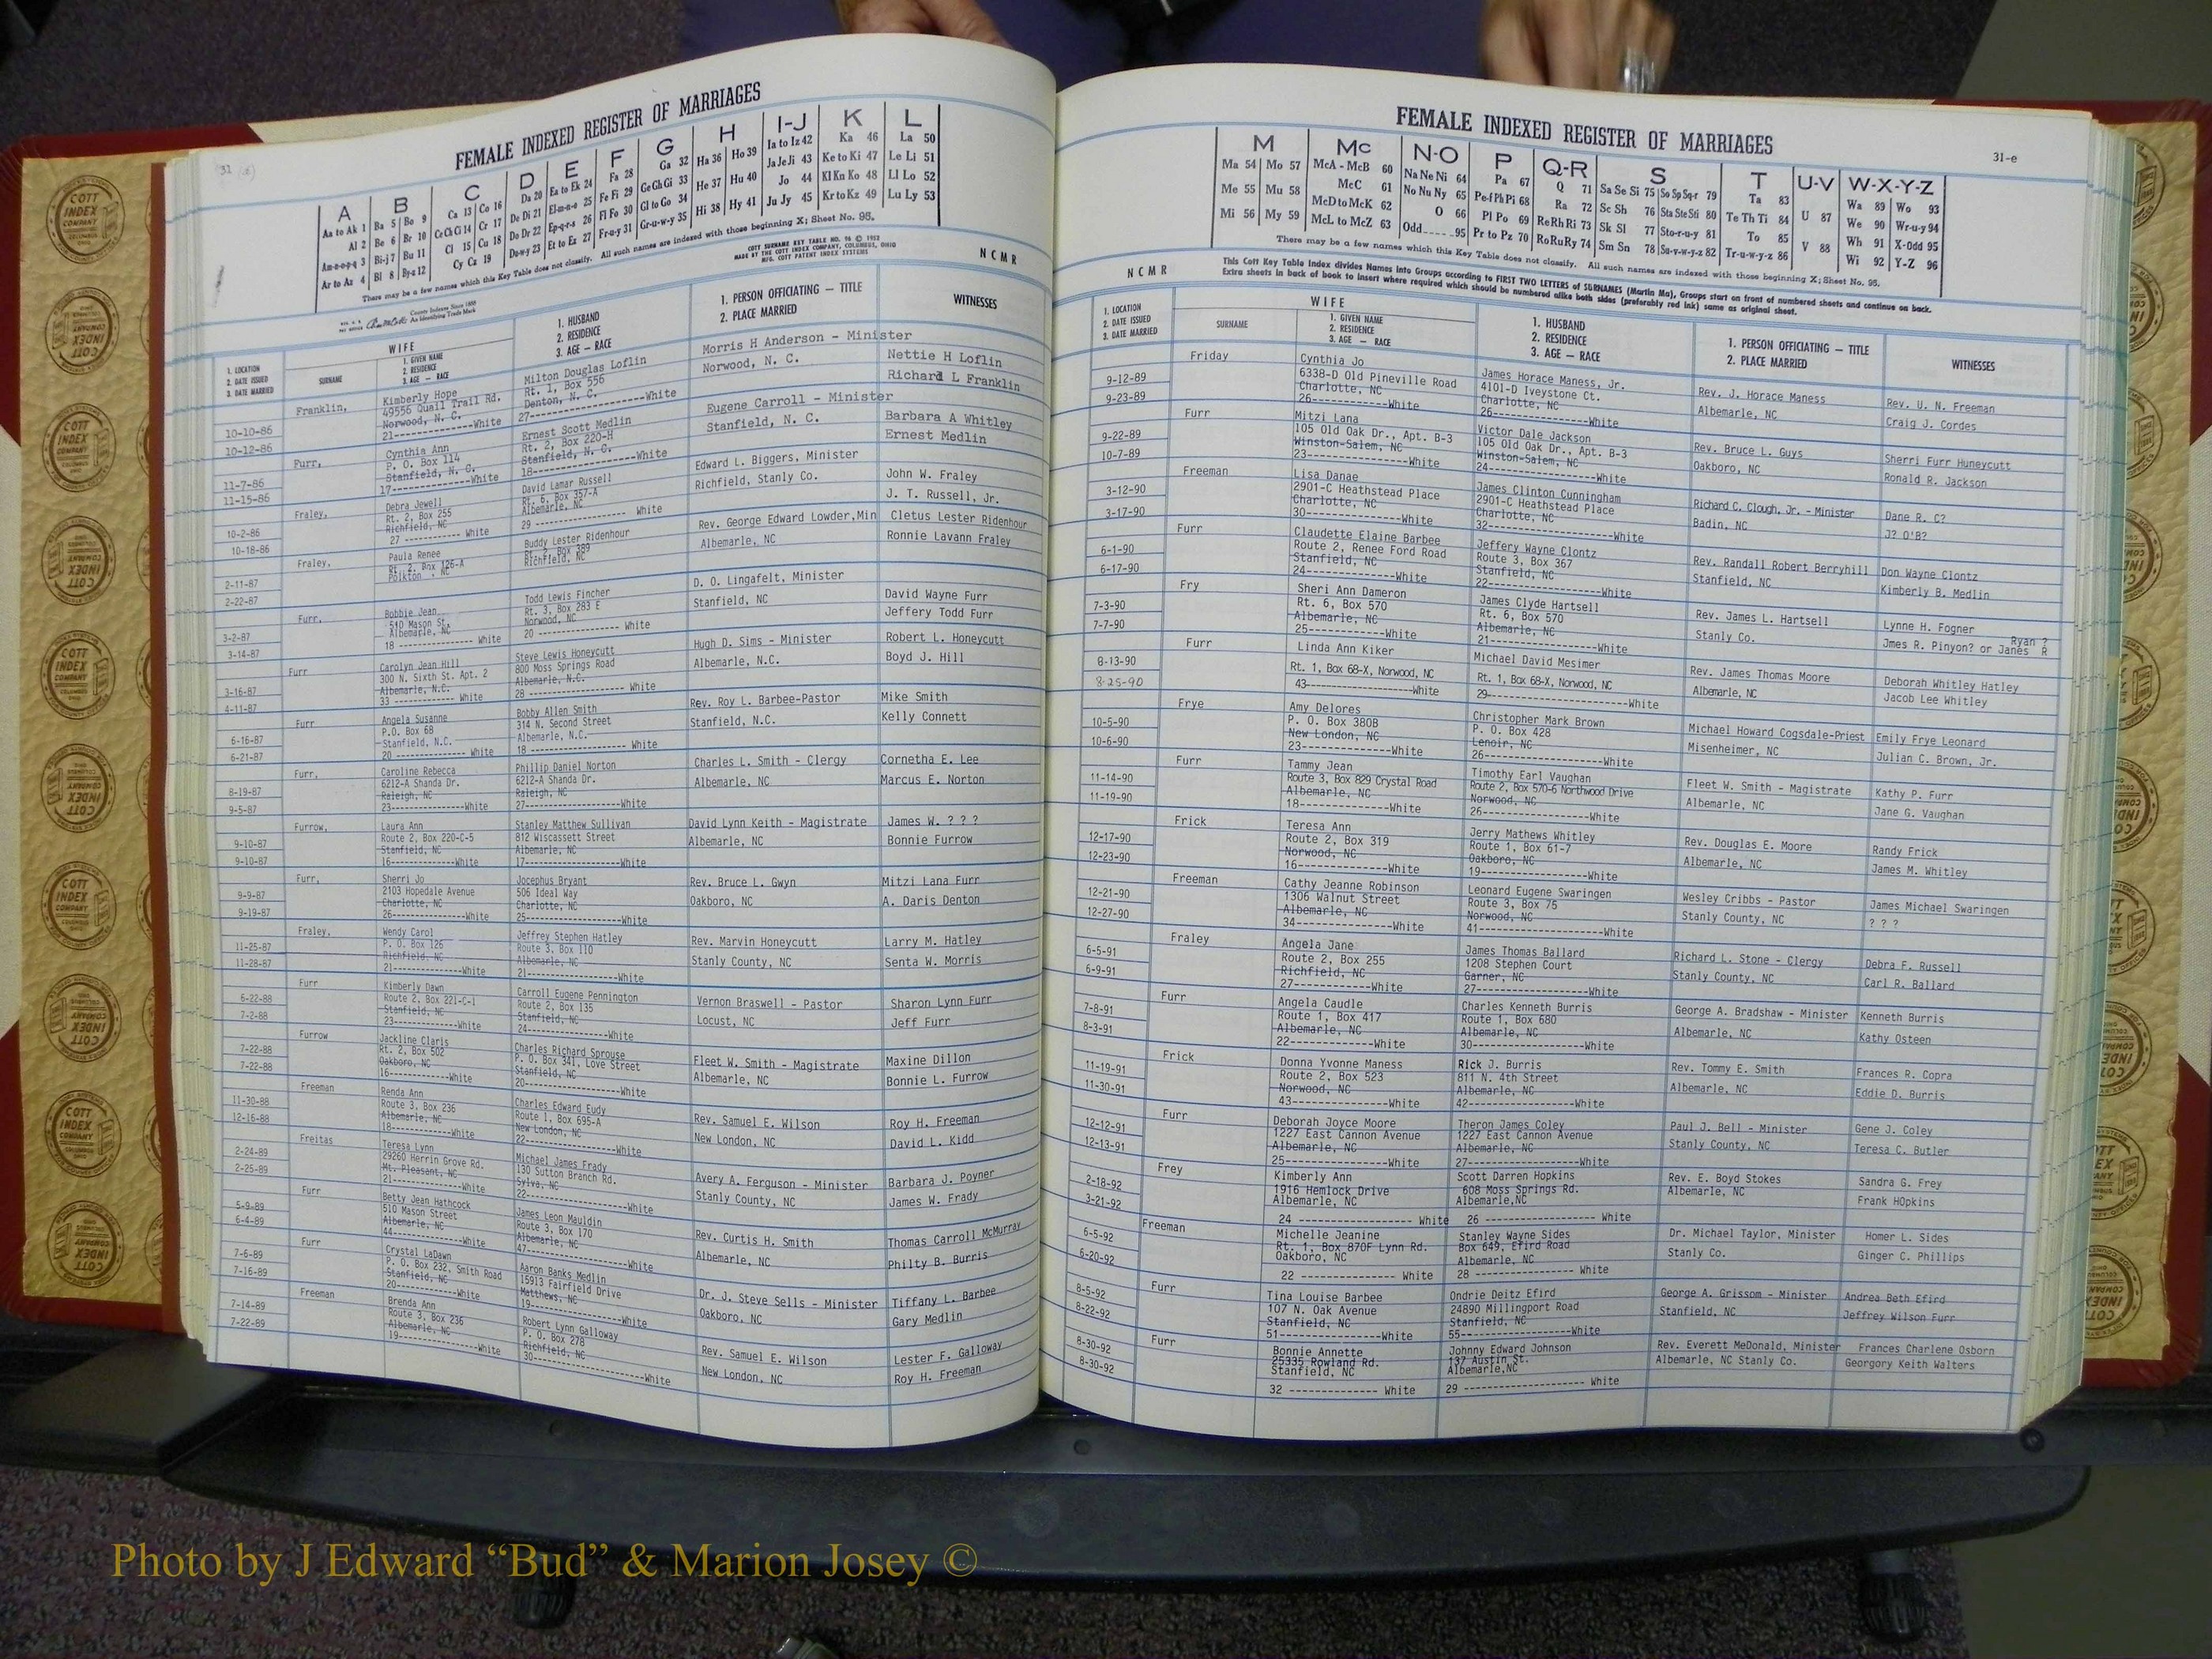 FEMALE INDEXED REGISTER OF MARRIAGES
A B C D E F G H I-J K L
Aa to Ak 1 Ba 5 Bo 9 Ca 13 Co 16 Da 20 Ea to Ek 24 Fa 28 Ga 32 Ha 36 Ho 39 Ia to Iz 42 Ka 46 La 50
Al 2 Be 6 Br 10 Ce Ch Ci 14 Cr 17 De Di 21 El-m-n-o 25 Fe Fi 29 Ge Gh Gi 33 He 37 Hu 40 Ja Je Ji 43 Ke to Ki 47 Le Li 51
Am-n-o-p-q 3 Bi-j 7 Bu 11 Cl 15 Cu 18 Do Dr 22 Ep-q-r-s 26 Fl Fo 30 Gl to Go 34 Hi 38 Hy 41 Jo 44 Kl Kn Ko 48 Ll Lo 52
Ar to Az 4 Bl 8 By-z 12 Cy Cz 19 Du-w-y 23 Et to Ez 27 Fr-u-y 31 Gr-u-w-y 35 Ju Jy 45 Kr to Kz 49 Lu Ly 53
There may be a few names which this Key Table does not classify. All such names are indexed with those beginning X; Sheet No. 95.
COTT SURNAME KEY TABLE NO. 96 © 1952
MADE BY THE COTT INDEX COMPANY, COLUMBUS, OHIO
MFG. COTT PATENT INDEX SYSTEMS
County Indexes Since 1888
An Identifying Trade Mark
NCMR
1. LOCATION
2. DATE ISSUED
3. DATE MARRIED
WIFE
SURNAME
1. GIVEN NAME
2. RESIDENCE
3. AGE — RACE
1. HUSBAND
2. RESIDENCE
3. AGE — RACE
1. PERSON OFFICIATING — TITLE
2. PLACE MARRIED
WITNESSES
Franklin, Kimberly Hope Milton Douglas Loflin Morris H Anderson - Minister Nettie H Loflin
49556 Quail Trail Rd. Rt. 1, Box 556 Norwood, N. C. Richard L Franklin
10-10-86 Norwood, N. C. Denton, N. C.
10-12-86 21------------White 27--------------------White
Furr, Cynthia Ann Ernest Scott Medlin Eugene Carroll - Minister Barbara A Whitley
P. O. Box 114 Rt. 2, Box 220-H Stanfield, N. C. Ernest Medlin
11-7-86 Stanfield, N. C. Stanfield, N. C.
11-15-86 17------------White 18------------------White
Fraley, Debra Jewell David Lamar Russell Edward L. Biggers, Minister John W. Fraley
Rt. 2, Box 255 Rt. 6, Box 357-A Richfield, Stanly Co. J. T. Russell, Jr.
10-2-86 Richfield, NC Albemarle, NC
10-18-86 27 ------------ White 29 ------------------ White
Fraley, Paula Renee Buddy Lester Ridenhour Rev. George Edward Lowder,Min Cletus Lester Ridenhour
2-11-87 Rt. 2, Box 126-A Rt. 2, Box 389 Albemarle, NC Ronnie Lavann Fraley
2-22-87 Polkton , NC Richfield, NC
Furr, Bobbie Jean Todd Lewis Fincher D. O. Lingafelt, Minister David Wayne Furr
510 Mason St. Rt. 3, Box 283 E Stanfield, NC Jeffery Todd Furr
3-2-87 Albemarle, NC Norwood, NC
3-14-87 18 -------------- White 20 ------------------ White
Furr Carolyn Jean Hill Steve Lewis Honeycutt Hugh D. Sims - Minister Robert L. Honeycutt
300 N. Sixth St. Apt. 2 800 Moss Springs Road Albemarle, N.C. Boyd J. Hill
3-16-87 Albemarle, N.C. Albemarle, N.C.
4-11-87 33 ------------ White 28 ------------------ White
Furr Angela Susanne Bobby Allen Smith Rev. Roy L. Barbee-Pastor Mike Smith
P.O. Box 68 314 N. Second Street Stanfield, N.C. Kelly Connett
6-16-87 Stanfield, N.C. Albemarle, N.C.
6-21-87 20 -------------- White 18 ------------------ White
Furr, Caroline Rebecca Phillip Daniel Norton Charles L. Smith - Clergy Cornetha E. Lee
6212-A Shanda Dr. 6212-A Shanda Dr. Albemarle, NC Marcus E. Norton
8-19-87 Raleigh, NC Raleigh, NC
9-5-87 23--------------White 27------------------White
Furrow, Laura Ann Stanley Matthew Sullivan David Lynn Keith - Magistrate James W. ? ? ?
Route 2, Box 220-C-5 812 Wiscassett Street Albemarle, NC Bonnie Furrow
9-10-87 Stanfield, NC Albemarle, NC
9-10-87 16--------------White 17------------------White
Furr, Sherri Jo Jocephus Bryant Rev. Bruce L. Gwyn Mitzi Lana Furr
9-9-87 2103 Hopedale Avenue 506 Ideal Way Oakboro, NC A. Daris Denton
9-19-87 Charlotte, NC Charlotte, NC
26--------------White 25------------------White
Fraley, Wendy Carol Jeffrey Stephen Hatley Rev. Marvin Honeycutt Larry M. Hatley
11-25-87 P. O. Box 126 Route 3, Box 110 Stanly County, NC Senta W. Morris
11-28-87 Richfield, NC Albemarle, NC
21--------------White 21------------------White
Furr Kimberly Dawn Carroll Eugene Pennington Vernon Braswell - Pastor Sharon Lynn Furr
6-22-88 Route 2, Box 221-C-1 Route 2, Box 135 Locust, NC Jeff Furr
7-2-88 Stanfield, NC Stanfield, NC
23--------------White 24------------------White
Furrow Jackline Claris Charles Richard Sprouse Fleet W. Smith - Magistrate Maxine Dillon
7-22-88 Rt. 2, Box 502 P. O. Box 341, Love Street Albemarle, NC Bonnie L. Furrow
7-22-88 Oakboro, NC Stanfield, NC
16--------------White 20------------------White
Freeman Renda Ann Charles Edward Eudy Rev. Samuel E. Wilson Roy H. Freeman
11-30-88 Route 3, Box 236 Route 1, Box 695-A New London, NC David L. Kidd
12-16-88 Albemarle, NC New London, NC
18--------------White 22------------------White
Freitas Teresa Lynn Michael James Frady Avery A. Ferguson - Minister Barbara J. Poyner
2-24-89 29260 Herrin Grove Rd. 130 Sutton Branch Rd. Stanly County, NC James W. Frady
2-25-89 Mt. Pleasant, NC Sylva, NC
21--------------White 22------------------White
Furr Betty Jean Hathcock James Leon Mauldin Rev. Curtis H. Smith Thomas Carroll McMurray
5-9-89 510 Mason Street Route 3, Box 170 Albemarle, NC Philty B. Burris
6-4-89 Albemarle, NC Albemarle, NC
44--------------White 47------------------White
Furr Crystal LaDawn Aaron Banks Medlin Dr. J. Steve Sells - Minister Tiffany L. Barbee
7-6-89 P. O. Box 232, Smith Road 15913 Fairfield Drive Oakboro, NC Gary Medlin
7-16-89 Stanfield, NC Matthews, NC
20--------------White 19------------------White
Freeman Brenda Ann Robert Lynn Galloway Rev. Samuel E. Wilson Lester F. Galloway
7-14-89 Route 3, Box 236 P. O. Box 278 New London, NC Roy H. Freeman
7-22-89 Albemarle, NC Richfield, NC
19--------------White 30------------------White
FEMALE INDEXED REGISTER OF MARRIAGES
31-e
M Mc N-O P Q-R S T U-V W-X-Y-Z
Ma 54 Mo 57 McA - McB 60 Na Ne Ni 64 Pa 67 Q 71 Sa Se Si 75 So Sp Sq-r 79 Ta 83 U 87 Wa 89 Wo 93
Me 55 Mu 58 McC 61 No Nu Ny 65 Pe-f Ph Pi 68 Ra 72 Sc Sh 76 Sta Ste Sti 80 Te Th Ti 84 V 88 We 90 Wr-u-y 94
Mi 56 My 59 McD to McK 62 O 66 Pl Po 69 Re Rh Ri 73 Sk Sl 77 Sto-r-u-y 81 To 85 Wh 91 X-Odd 95
McL to McZ 63 Odd_ _ _ _95 Pr to Pz 70 Ro Ru Ry 74 Sm Sn 78 Su-v-w-y-z 82 Tr-u-w-y-z 86 Wi 92 Y-Z 96
There may be a few names which this Key Table does not classify. All such names are indexed with those beginning X; Sheet No. 95.
NCMR
This Cott Key Table Index divides Names into Groups according to FIRST TWO LETTERS of SURNAMES (Martin Ma), Groups start on front of numbered sheets and continue on back.
Extra sheets in back of book to insert where required which should be numbered alike both sides (preferably red ink) same as original sheet.
1. LOCATION
2. DATE ISSUED
3. DATE MARRIED
WIFE
SURNAME
1. GIVEN NAME
2. RESIDENCE
3. AGE — RACE
1. HUSBAND
2. RESIDENCE
3. AGE — RACE
1. PERSON OFFICIATING — TITLE
2. PLACE MARRIED
WITNESSES
Friday Cynthia Jo James Horace Maness, Jr. Rev. J. Horace Maness Rev. U. N. Freeman
9-12-89 6338-D Old Pineville Road 4101-D Iveystone Ct. Albemarle, NC Craig J. Cordes
9-23-89 Charlotte, NC Charlotte, NC
26--------------White 26------------------White
Furr Mitzi Lana Victor Dale Jackson Rev. Bruce L. Guys Sherri Furr Huneycutt
9-22-89 105 Old Oak Dr., Apt. B-3 105 Old Oak Dr., Apt. B-3 Oakboro, NC Ronald R. Jackson
10-7-89 Winston-Salem, NC Winston-Salem, NC
23--------------White 24------------------White
Freeman Lisa Danae James Clinton Cunningham Richard C. Clough, Jr. - Minister Dane R. C?
3-12-90 2901-C Heathstead Place 2901-C Heathstead Place Badin, NC J? O'B?
3-17-90 Charlotte, NC Charlotte, NC
30--------------White 32------------------White
Furr Claudette Elaine Barbee Jeffery Wayne Clontz Rev. Randall Robert Berryhill Don Wayne Clontz
6-1-90 Route 2, Renee Ford Road Route 3, Box 367 Stanfield, NC Kimberly B. Medlin
6-17-90 Stanfield, NC Stanfield, NC
24--------------White 22------------------White
Fry Sheri Ann Dameron James Clyde Hartsell Rev. James L. Hartsell Lynne H. Fogner
7-3-90 Rt. 6, Box 570 Rt. 6, Box 570 Stanly Co. Jmes R. Pinyon? or Janes Ryan ? R
7-7-90 Albemarle, NC Albemarle, NC
25--------------White 21------------------White
Furr Linda Ann Kiker Michael David Mesimer Rev. James Thomas Moore Deborah Whitley Hatley
8-13-90 Rt. 1, Box 68-X, Norwood, NC Rt. 1, Box 68-X, Norwood, NC Albemarle, NC Jacob Lee Whitley
8-25-90 43--------------White 29------------------White
Frye Amy Delores Christopher Mark Brown Michael Howard Cogsdale-Priest Emily Frye Leonard
10-5-90 P. O. Box 380B P. O. Box 428 Misenheimer, NC Julian C. Brown, Jr.
10-6-90 New London, NC Lenoir, NC
23--------------White 26------------------White
Furr Tammy Jean Timothy Earl Vaughan Fleet W. Smith - Magistrate Kathy P. Furr
11-14-90 Route 3, Box 829 Crystal Road Route 2, Box 570-6 Northwood Drive Albemarle, NC Jane G. Vaughan
11-19-90 Albemarle, NC Norwood, NC
18--------------White 26------------------White
Frick Teresa Ann Jerry Mathews Whitley Rev. Douglas E. Moore Randy Frick
12-17-90 Route 2, Box 319 Route 1, Box 61-7 Albemarle, NC James M. Whitley
12-23-90 Norwood, NC Oakboro, NC
16--------------White 19------------------White
Freeman Cathy Jeanne Robinson Leonard Eugene Swaringen Wesley Cribbs - Pastor James Michael Swaringen
12-21-90 1306 Walnut Street Route 3, Box 75 Stanly County, NC ? ? ?
12-27-90 Albemarle, NC Norwood, NC
34--------------White 41------------------White
Fraley Angela Jane James Thomas Ballard Richard L. Stone - Clergy Debra F. Russell
6-5-91 Route 2, Box 255 1208 Stephen Court Stanly County, NC Carl R. Ballard
6-9-91 Richfield, NC Garner, NC
27--------------White 27------------------White
Furr Angela Caudle Charles Kenneth Burris George A. Bradshaw - Minister Kenneth Burris
7-8-91 Route 1, Box 417 Route 1, Box 680 Albemarle, NC Kathy Osteen
8-3-91 Albemarle, NC Albemarle, NC
22--------------White 30------------------White
Frick Donna Yvonne Maness Rick J. Burris Rev. Tommy E. Smith Frances R. Copra
11-19-91 Route 2, Box 523 811 N. 4th Street Albemarle, NC Eddie D. Burris
11-30-91 Norwood, NC Albemarle, NC
43--------------White 42------------------White
Furr Deborah Joyce Moore Theron James Coley Paul J. Bell - Minister Gene J. Coley
12-12-91 1227 East Cannon Avenue 1227 East Cannon Avenue Stanly County, NC Teresa C. Butler
12-13-91 Albemarle, NC Albemarle, NC
25--------------White 27------------------White
Frey Kimberly Ann Scott Darren Hopkins Rev. E. Boyd Stokes Sandra G. Frey
2-18-92 1916 Hemlock Drive 608 Moss Springs Rd. Albemarle, NC Frank HOpkins
3-21-92 Albemarle, NC Albemarle,NC
24 ------------------ White 26 ------------------ White
Freeman Michelle Jeanine Stanley Wayne Sides Dr. Michael Taylor, Minister Homer L. Sides
6-5-92 Rt. 1, Box 870F Lynn Rd. Box 649, Efird Road Stanly Co. Ginger C. Phillips
6-20-92 Oakboro, NC Albemarle, NC
22 ------------------ White 28 ------------------ White
Furr Tina Louise Barbee Ondrie Deitz Efird George A. Grissom - Minister Andrea Beth Efird
8-5-92 107 N. Oak Avenue 24890 Millingport Road Stanfield, NC Jeffrey Wilson Furr
8-22-92 Stanfield, NC Stanfield, NC
51--------------White 55------------------White
Furr Bonnie Annette Johnny Edward Johnson Rev. Everett McDonald, Minister Frances Charlene Osborn
8-30-92 25335 Rowland Rd. 137 Austin St. Albemarle, NC Stanly Co. Georgory Keith Walters
8-30-92 Stanfield, NC Albemarle,NC
32 ------------------ White 29 ------------------ White
COTT
INDEX
COMPANY
Photo by J Edward “Bud” & Marion Josey ©